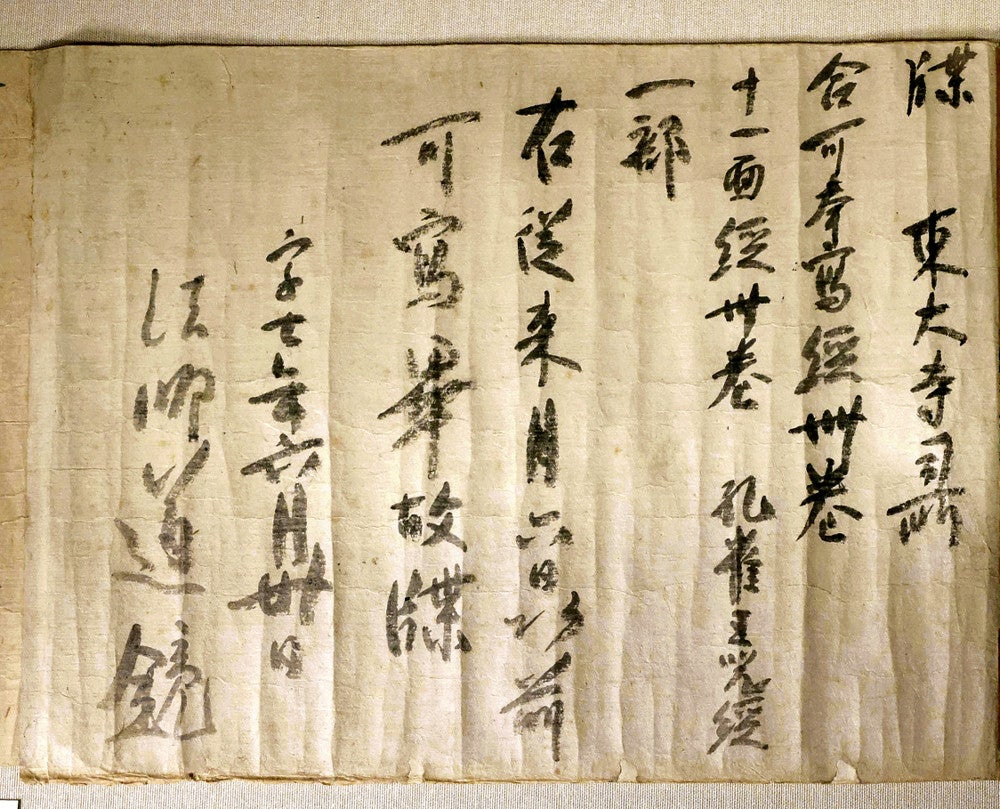 牒　東大寺司所
合可奉寫經卌卷
十一面經卅卷　孔雀王咒經
一部
右從來月六日以前
可寫畢故牒
字七年六月卅日
法師道鏡